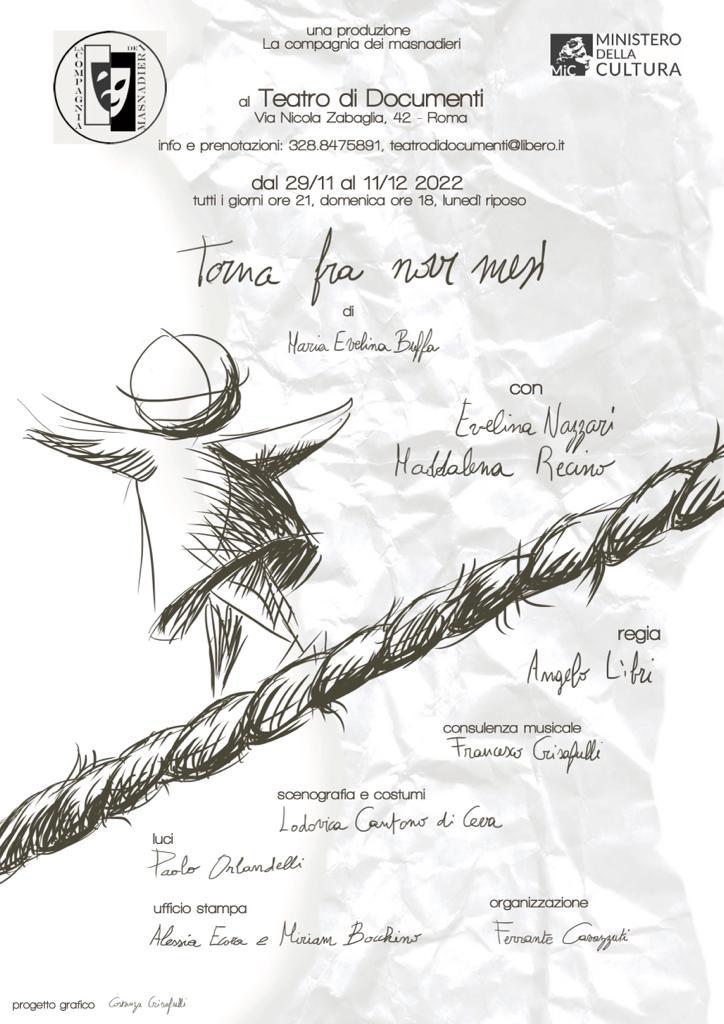 una produzione
La compagnia dei masnadieri
LA COMPAGNIA DEI MASNADIERI
MiC
MINISTERO
DELLA
CULTURA
al Teatro di Documenti
Via Nicola Zabaglia, 42 - Roma
info e prenotazioni: 328.8475891, teatrodidocumenti@libero.it
dal 29/11 al 11/12 2022
tutti i giorni ore 21, domenica ore 18, lunedì riposo
Torna fra nove mesi
di
Maria Evelina Buffa
con
Evelina Nazzari
Maddalena Recino
regia
Angelo Libri
consulenza musicale
Francesco Crisafulli
scenografia e costumi
Lodovica Cantono di Ceva
luci
Paolo Orlandelli
ufficio stampa
Alessia Ecora e Miriam Bocchino
organizzazione
Ferrante Cavazzuti
progetto grafico Costanza Crisafulli